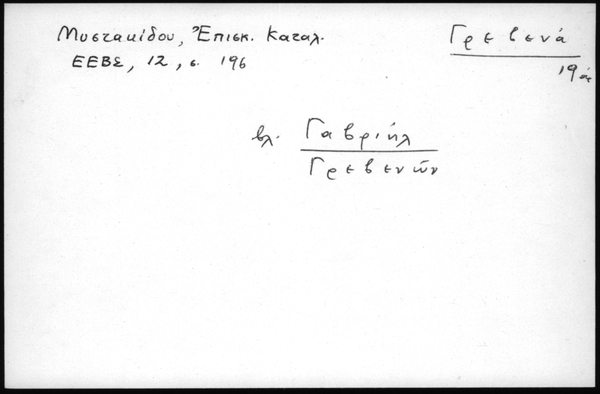 Μυστακίδου, Ἐπισκ. Καταλ.
ΕΕΒΣ, 12, σ. 196
Γρεβενά
19 αι
βλ. Γαβριήλ
Γρεβενῶν